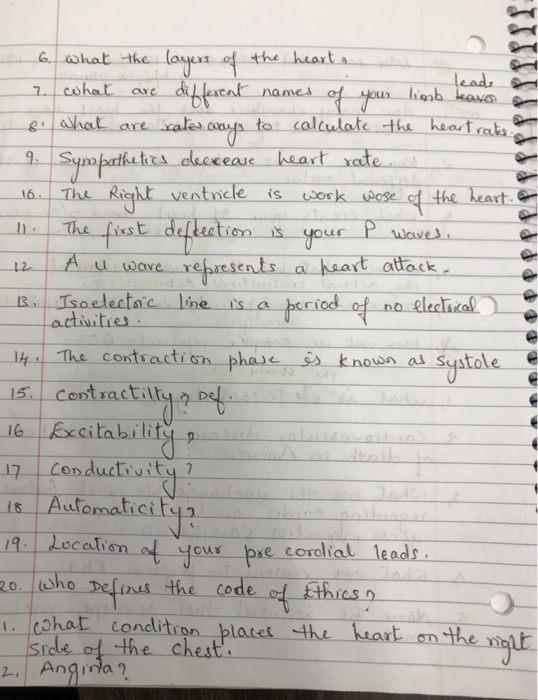 6. what the layers of the heart?
leads
7. what are different names of your limb leaves
8. what are rates ways to calculate the heart rate.
9. Sympathetics decrease heart rate.
10. The Right ventricle is work wose of the heart.
11. The first deflection is your P waves.
12 A u wave represents a heart attack.
13. Isoelectric line is a period of no electrical
activities.
14. The contraction phase is known as systole
15. contractilty? Def.
16 Excitability?
17 conductivity?
18 Automaticity?
19. Location of your pre cordial leads.
20. Who Defines the code of Ethics?
1. What condition places the heart on the right
side of the chest.
2. Angina?